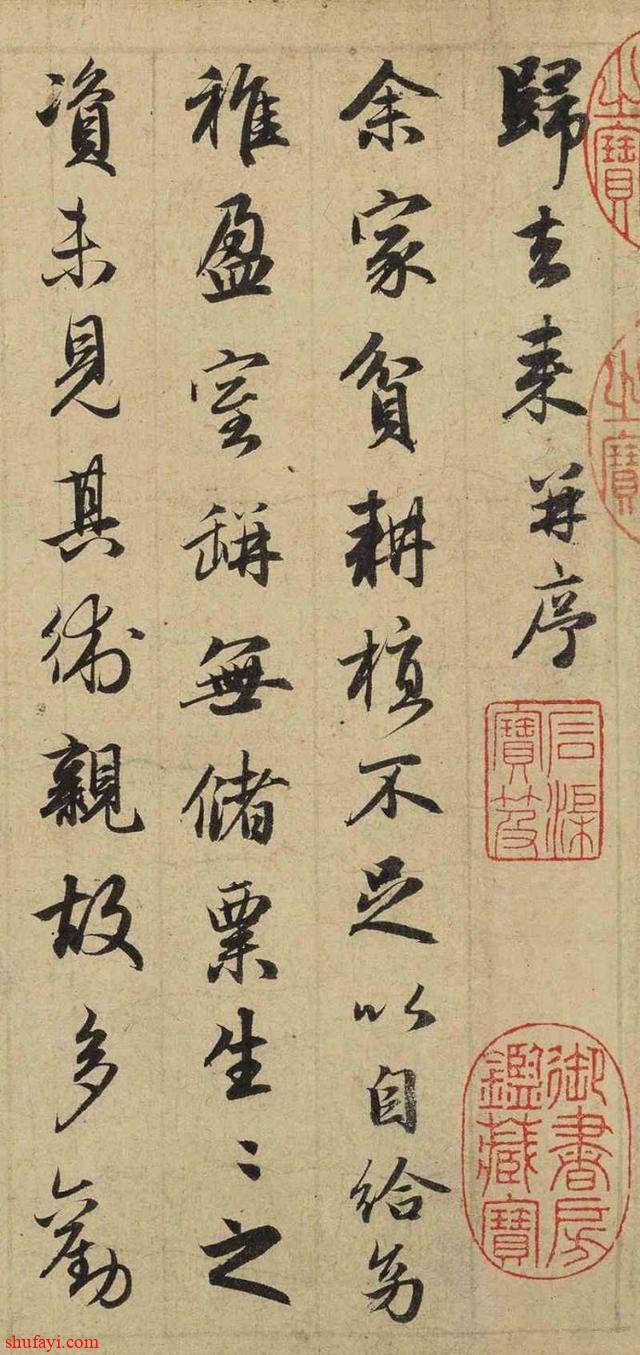 之寶
之寶
歸去來并序
石渠寶笈
御書房鑑藏寶
余家貧耕植不足以自給幼
稚盈室缾無儲粟生〻之
資未見其術親故多勸
shufayi.com